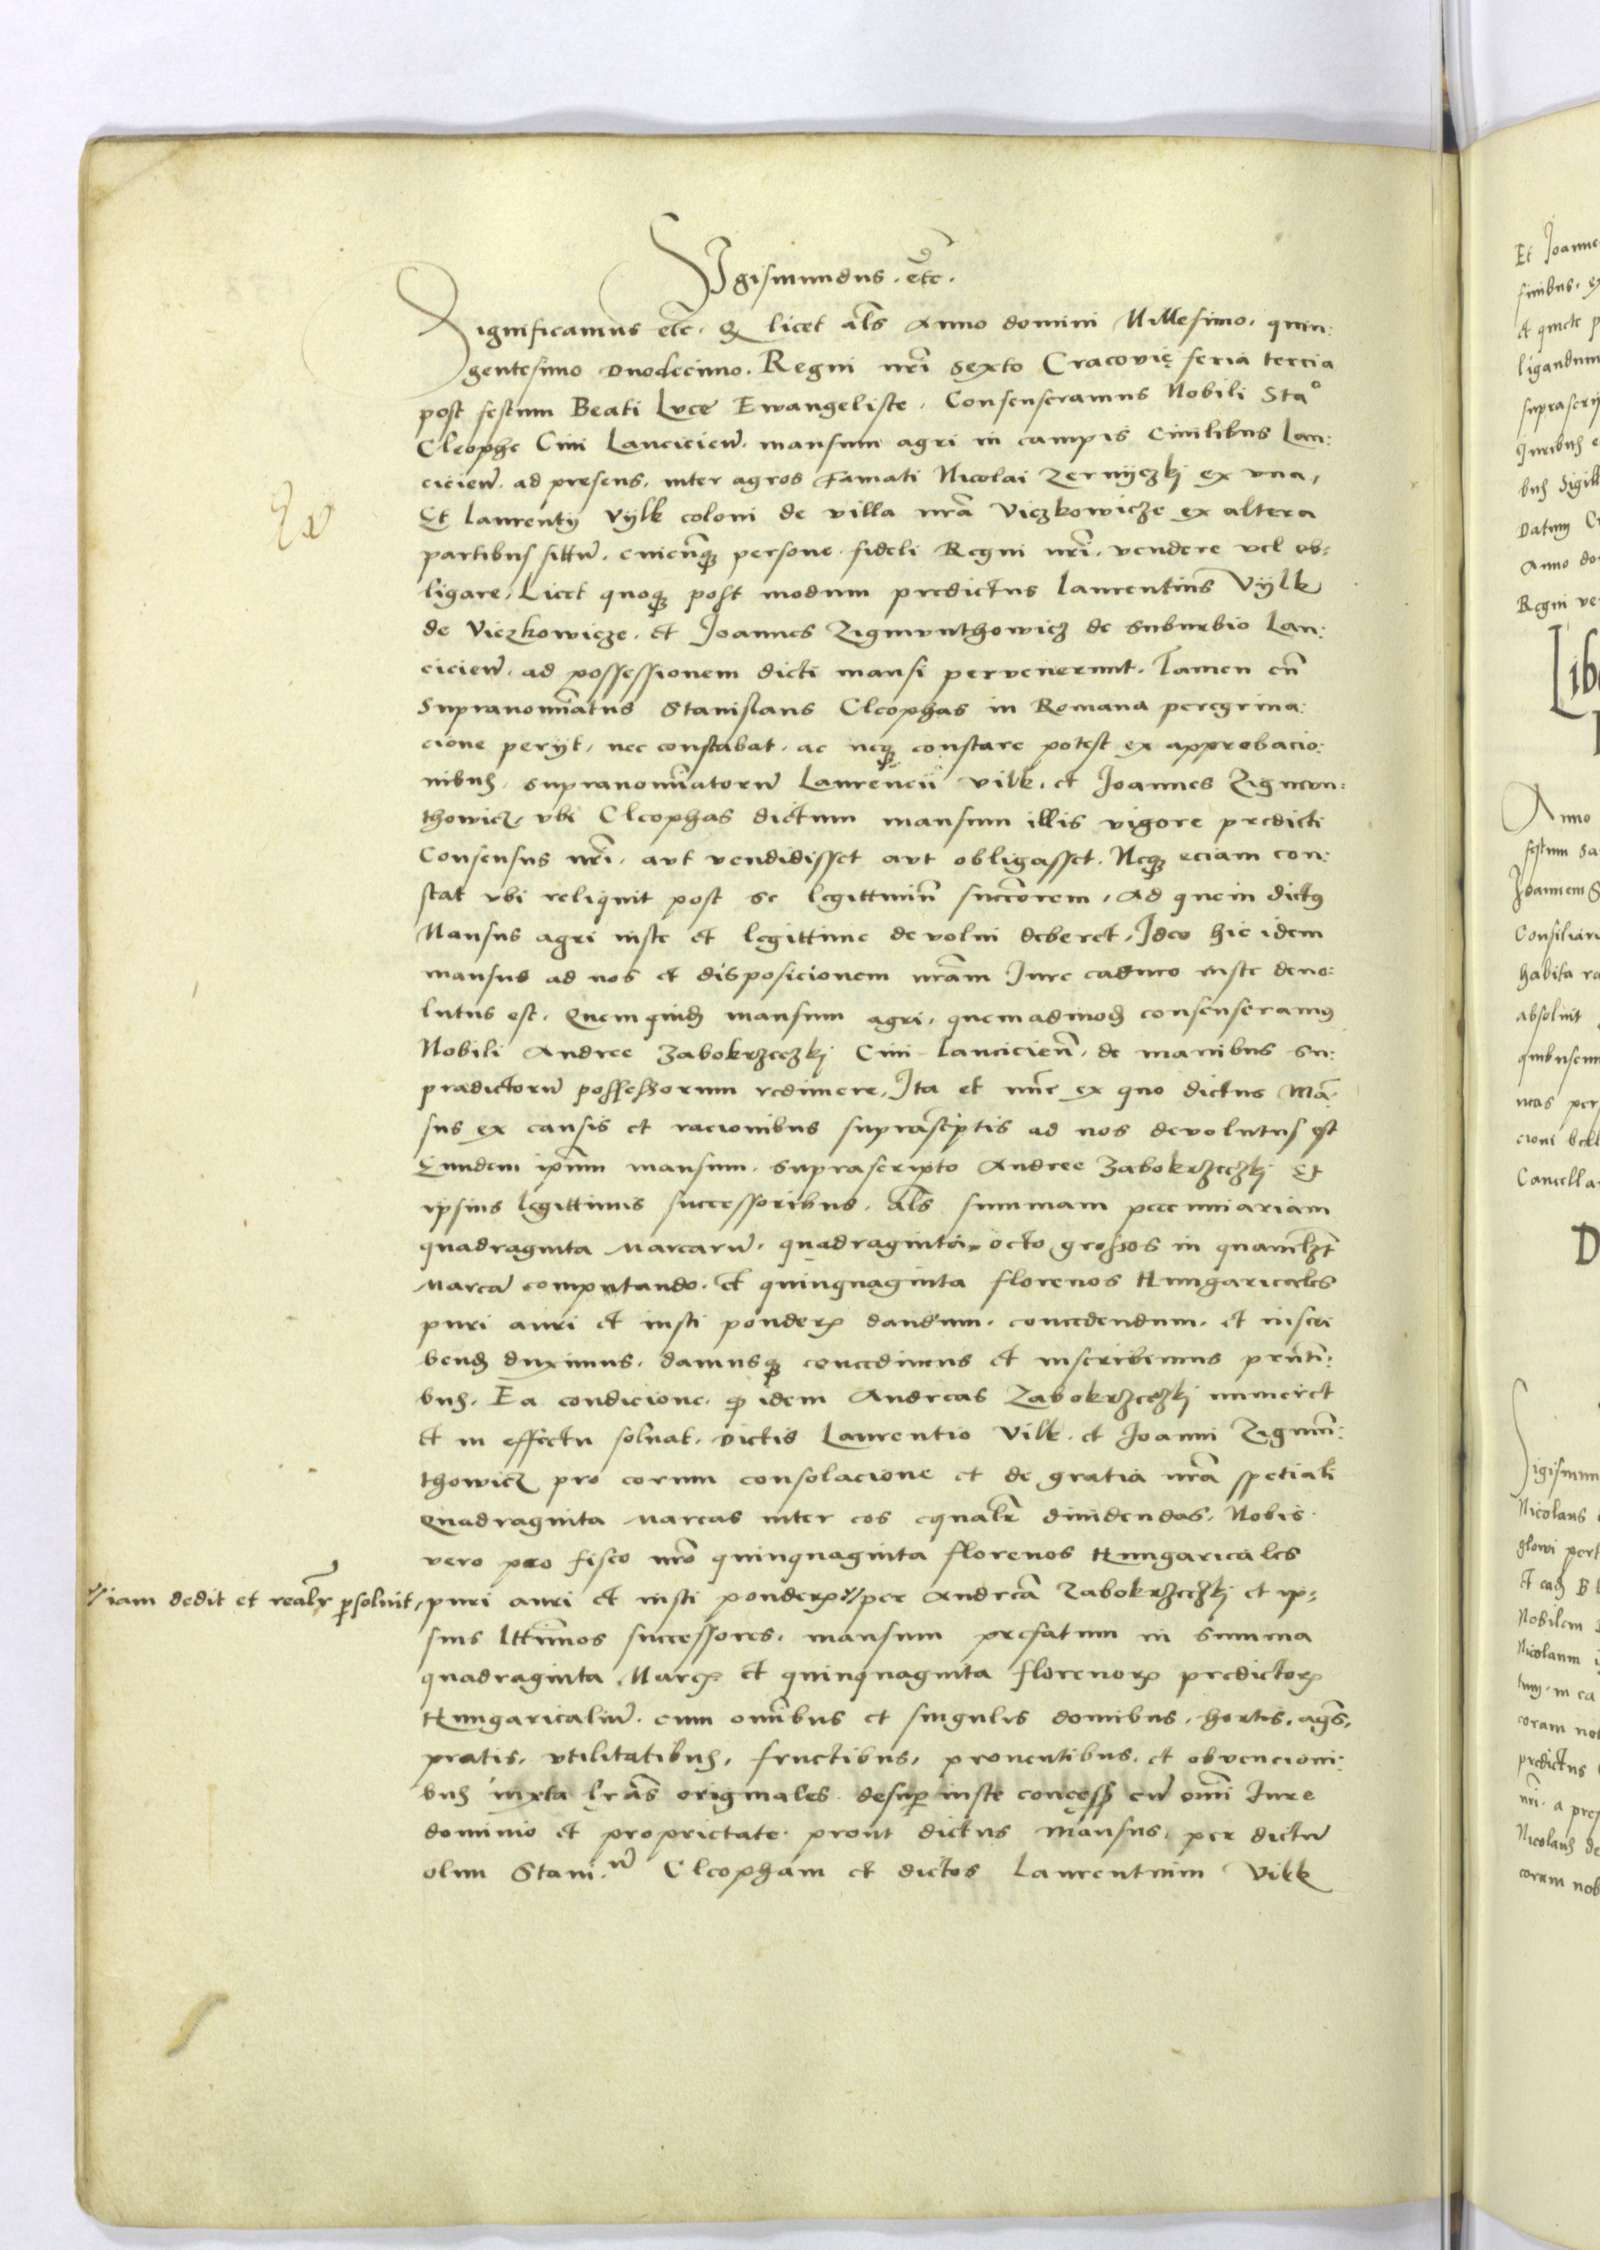 Sigismundus. etc.
Significamus etc. q licet als Anno domini Millesimo. quin:
gentesimo duodecimo. Regni nri sexto Cracovię feria tercia
post festum Beati Luce Ewangeliste. Consenseramus Nobili Sta°
Cleophe Civi Lancicien. mansum agri in campis Civilibus Lan:
cicien. ad presens. inter agros Famati Nicolai Zernyczkj ex una,
Et Laurentij Vylk coloni de villa nra Viczkowicze ex altera
partibus sittu. cuicunq persone fideli Regni nri. vendere vel ob:
ligare, Licet quoq post modum predictus Laurentius Vylk
de Viczkowicze. et Joannes Zigmunthowicz de suburbio Lan:
cicien. ad possessionem dicti mansi pervenerunt. Tamen cu
Supranominatus Stanislaus Cleophas in Romana peregrina:
cione perijt, nec constabat. ac neq constare potest ex approbacio:
nibus. supranominatoru Laurencii vilk. et Joannes Zigmun:
thowicz, ubi Cleophas dictum mansum illis vigore predicti
Consensus nri. aut vendidisset aut obligasset. Neq eciam con:
stat ubi reliquit post se legittimu successorem, Ad quem dictus
Mansus agri iuste et legittime devolui deberet, Ideo hic idem
mansus ad nos et disposicionem nram Iure caduco iuste devo:
lutus est. Quemquid mansum agri. quemadmod consenseramus
Nobili Andree Zabokrzeczkj Civi Lancicien. de manibus su:
pradictoru possessorum redimere, Ita et nunc ex quo dictus Ma:
sus ex causis et racionibus suprascriptis ad nos devolutus est
Eundem ipsum mansum. suprascripto Andree Zabokrzeczkj Et
ipsius legittimis successoribus. als summam peccuniariam
quadraginta Marcaru. quadraginta octo grossos in quamlzt
Marca computando. et quinquaginta florenos Hungaricales
puri auri et iusti ponderis dandum. concedendum. et inscri
bend duximus. damusq concedimus et inscribimus prnti:
bus. Ea condicione. q idem Andreas Zabokrzeczkj numeret
et in effectu soluat. dictis Laurentio Vilk. et Joanni Zigmun:
thowicz pro eorum consolacione et de gratia nra speciali
Quadraginta Marcas inter eos equalr dividendas. Nobis
vero pro fisco nro quinquaginta florenos Hungaricales
iam dedit et realr psoluit,
puri auri et iusti ponderis per Andrea Zabokrzeczkj et ip:
sius lttimos successores. mansum prefatum in summa
quadraginta Marcar et quinquaginta florenor predictor
Hungaricaliu. cum omnibus et singulis domibus. hortis. agris,
pratis. utilitatibus, fructibus, proventibus. et obvencioni:
bus iuxta lras originales desup iuste concess cu omni Iure
dominio et proprietate prout dictus Mansus. per dictu
olim Stani. Cleopham et dictos Laurentium Vilk